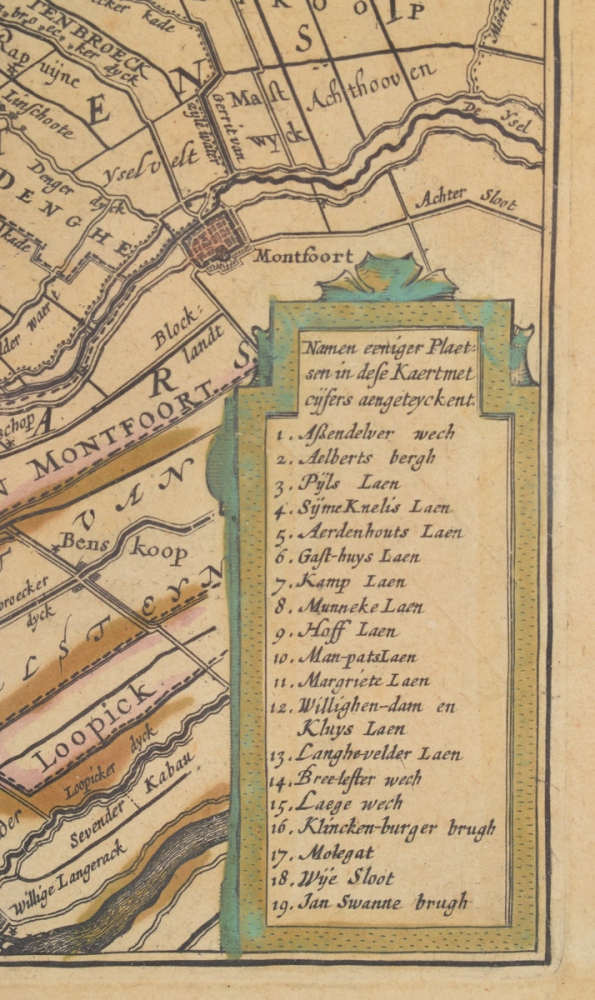 TENBROECK
kade
dyck
Rap uijne
Linschoote
E
N
S
I P
Mast
wyck
Achthooven
De Ysel
Gerrit van
Yselvelt
Denger dyck
DENGHE
kade
Achter Sloot
Montfoort
Block:
landt
ARS
schop
MONTFOORT
VAN
Bens koop
broecker
dyck
LSTEYN
Loopick
Loopicker dyck
Sevender Kabau
Willige Langerack
Namen eeniger Plaet:
sen in dese Kaert met
cijfers aengeteyckent.
1. Aßendelver wech
2. Aelberts bergh
3. Pÿls Laen
4. Sÿme Knelis Laen
5. Aerdenhouts Laen
6. Gast-huys Laen
7. Kamp Laen
8. Munneke Laen
9. Hoff Laen
10. Man-pats Laen
11. Margriete Laen
12. Willighen-dam en
Kluys Laen
13. Langhe-velder Laen
14. Bree-lester wech
15. Laege wech
16. Klincken-burger brugh
17. Molegat
18. Wÿe Sloot
19. Ian Swanne brugh